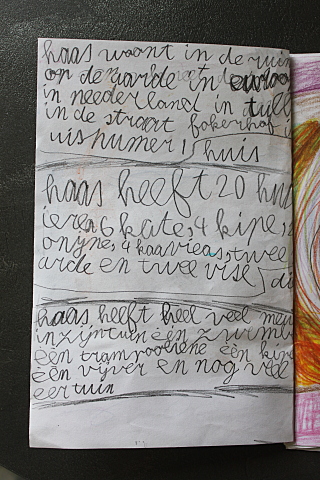 haas woont in de ruim
op de aarde in euroo
in neederland in tull
in de straat fokerhof
uisnumer 1 huis
haas heeft 20 hui
ieren 6 kate, 4 kipe, 2
onijne, 4 kaavieas, twee
arde en twee vise di
haas heeft heel veel meu
in zijn tuin één zwemb
één trampooliene één kip
één vijver en nog veel
eertuin